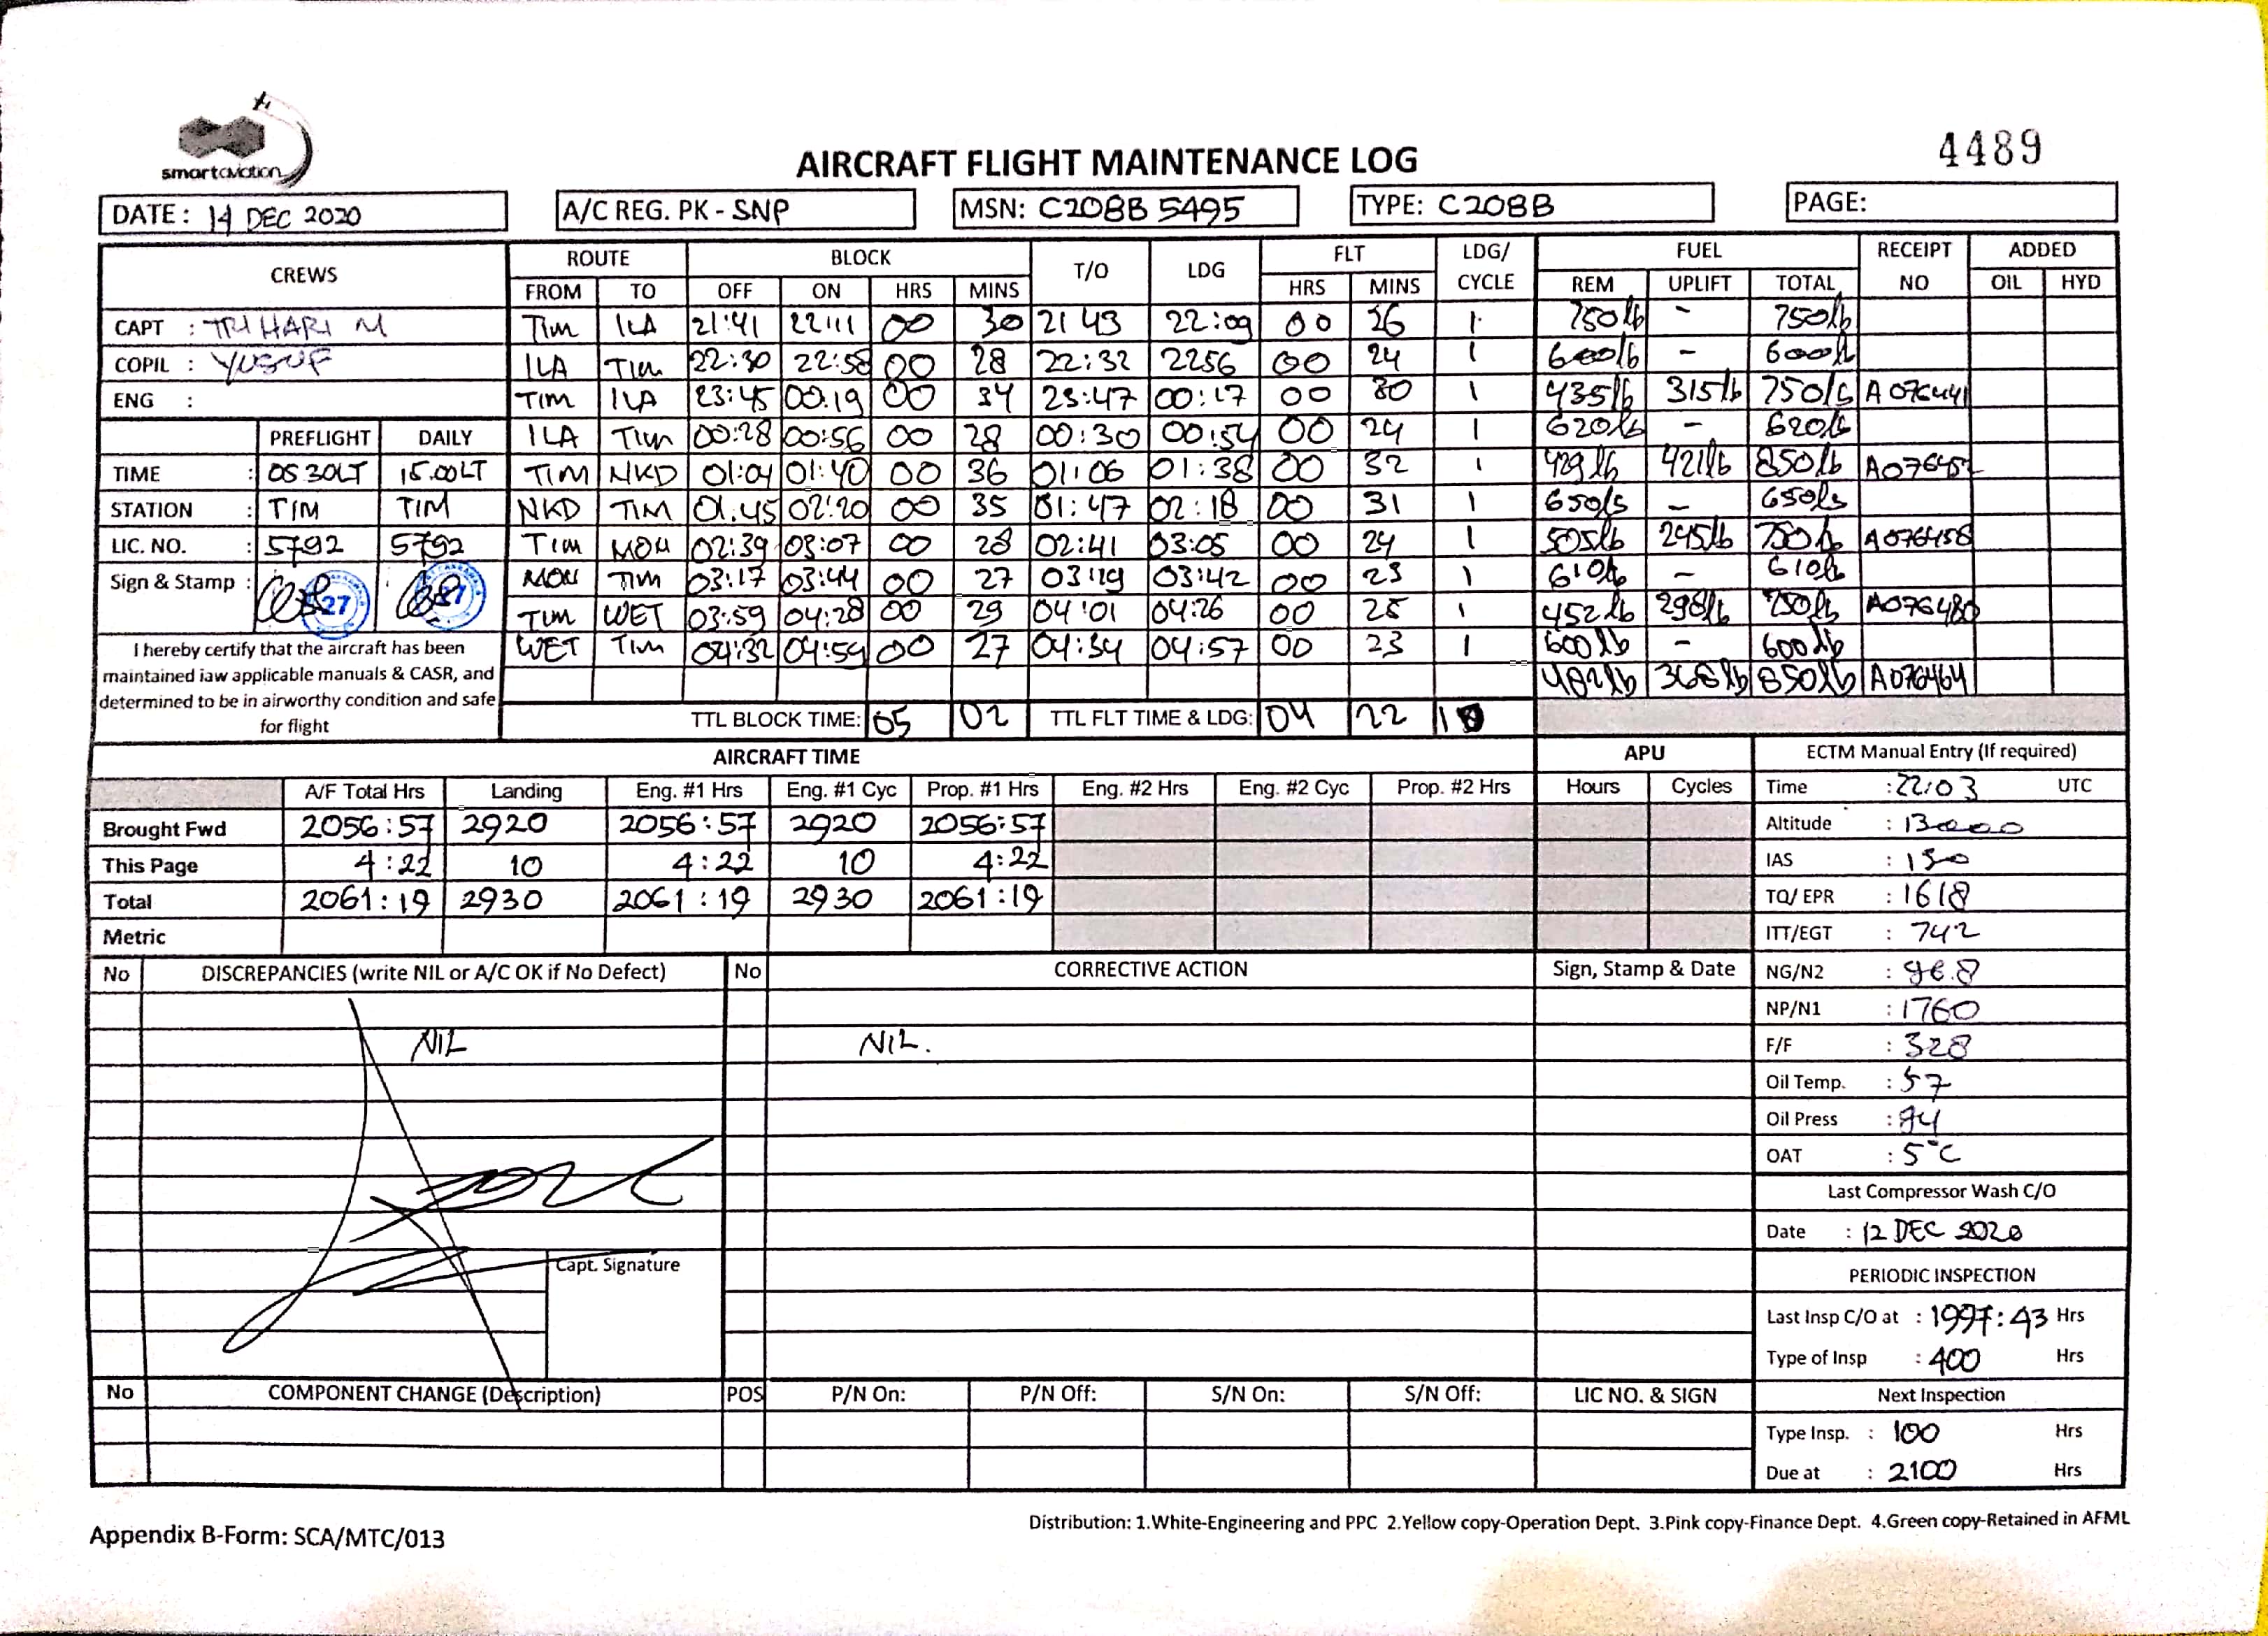 smartaviation
AIRCRAFT FLIGHT MAINTENANCE LOG
4489
DATE: 14 DEC 2020 A/C REG. PK - SNP MSN: C208B 5495 TYPE: C208B PAGE:
CREWS ROUTE BLOCK T/O LDG FLT LDG/ CYCLE FUEL RECEIPT NO ADDED
FROM TO OFF ON HRS MINS HRS MINS REM UPLIFT TOTAL OIL HYD
CAPT : TRI HARI M TIM ILA 21:41 22:11 00 30 21 43 22:09 00 26 1 750lb - 750lb
COPIL : YUSUF ILA TIM 22:30 22:58 00 28 22:32 2256 00 24 1 600lb - 600lb
ENG : TIM ILA 23:45 00:19 00 34 23:47 00:17 00 30 1 435lb 315lb 750lb A076441
PREFLIGHT DAILY ILA TIM 00:28 00:56 00 28 00:30 00:54 00 24 1 620lb - 620lb
TIME : 05 30LT 15.00LT TIM NKD 01:04 01:40 00 36 01:06 01:38 00 32 1 429 lb 421lb 850lb
STATION : TIM TIM NKD TIM 01:45 02:20 00 35 01:47 02:18 00 31 1 650lb - 650lb
LIC. NO. : 5792 5792 TIM MOU 02:39 03:07 00 28 02:41 03:05 00 24 1 505lb 245lb 750lb A076458
Sign & Stamp : 27 27 MOU TIM 03:17 03:44 00 27 03:19 03:42 00 23 1 610lb - 610lb
TIM WET 03:59 04:28 00 29 04:01 04:26 00 25 1 452 lb 298lb 750lb A076480
I hereby certify that the aircraft has been WET TIM 04:32 04:59 00 27 04:34 04:57 00 23 1 600lb - 600lb
maintained iaw applicable manuals & CASR, and 482lb 368lb 850lb A076464
determined to be in airworthy condition and safe
for flight TTL BLOCK TIME: 05 02 TTL FLT TIME & LDG: 04 22 10
AIRCRAFT TIME APU ECTM Manual Entry (If required)
A/F Total Hrs Landing Eng. #1 Hrs Eng. #1 Cyc Prop. #1 Hrs Eng. #2 Hrs Eng. #2 Cyc Prop. #2 Hrs Hours Cycles Time :22:03 UTC
Brought Fwd 2056:57 2920 2056:57 2920 2056:57 Altitude : 13000
This Page 4:22 10 4:22 10 4:22 IAS : 150
Total 2061:19 2930 2061:19 2930 2061:19 TQ/ EPR : 1618
Metric ITT/EGT : 742
No DISCREPANCIES (write NIL or A/C OK if No Defect) No CORRECTIVE ACTION Sign, Stamp & Date NG/N2 : 96.8
NP/N1 : 1760
NIL NIL. F/F : 328
Oil Temp. : 57
Oil Press : 94
OAT : 5°C
Last Compressor Wash C/O
Date : 12 DEC 2020
Capt. Signature
PERIODIC INSPECTION
Last Insp C/O at : 1997:43 Hrs
Type of Insp : 400 Hrs
No COMPONENT CHANGE (Description) POS P/N On: P/N Off: S/N On: S/N Off: LIC NO. & SIGN Next Inspection
Type Insp. : 100 Hrs
Due at : 2100 Hrs
Appendix B-Form: SCA/MTC/013
Distribution: 1.White-Engineering and PPC 2.Yellow copy-Operation Dept. 3.Pink copy-Finance Dept. 4.Green copy-Retained in AFML